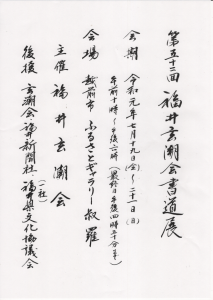 第五十二回 福井玄潮会書道展
会期 令和元年七月十九日(金)〜二十一日(日)
午前十時〜午後六時(最終日午後四時三十分まで)
会場 越前市 ふるさとギャラリー叔羅
主催 福井玄潮会
後援 玄潮会・福井新聞社・福井県文化協議会
(一社)